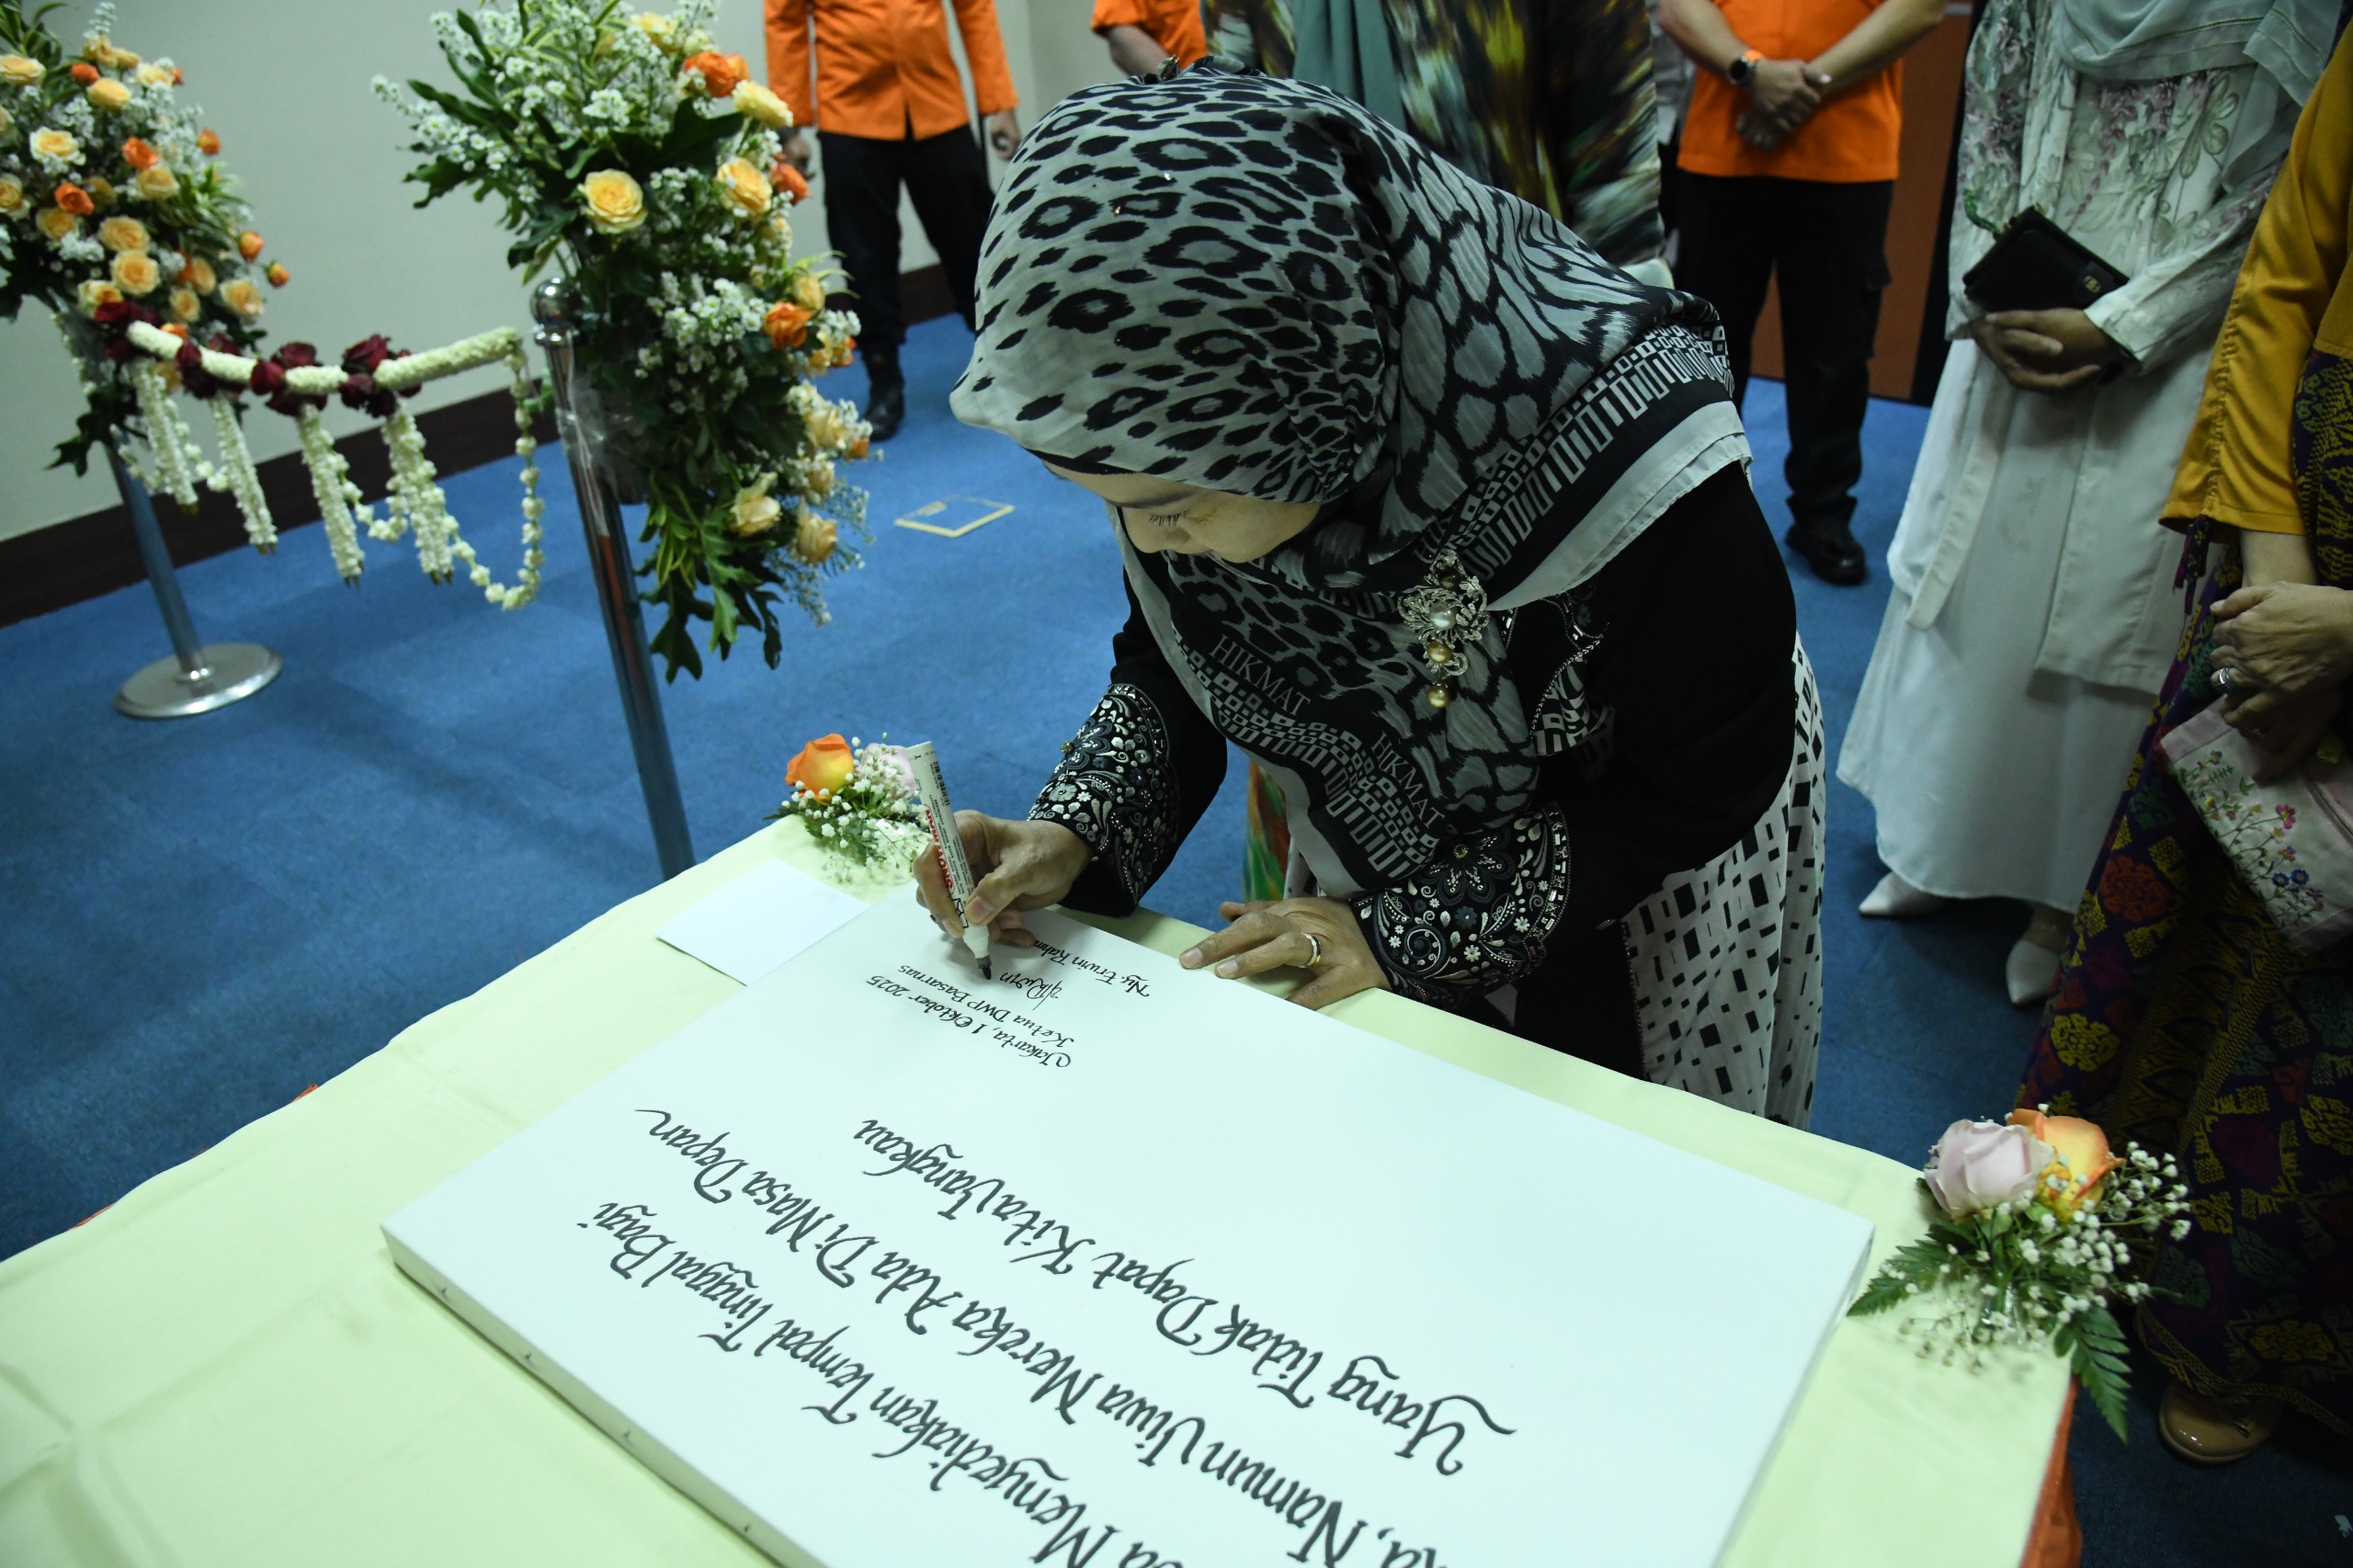 Menyediakan Tempat Tinggal Bagi
Namun Jiwa Mereka Ada Di Masa Depan
Yang Tidak Dapat Kita Jangkau
Jakarta, 1 Oktober 2025
Ketua DWP Basarnas
Ny. Erwin
HIKMAT
HIKMAT
SNOWMAN